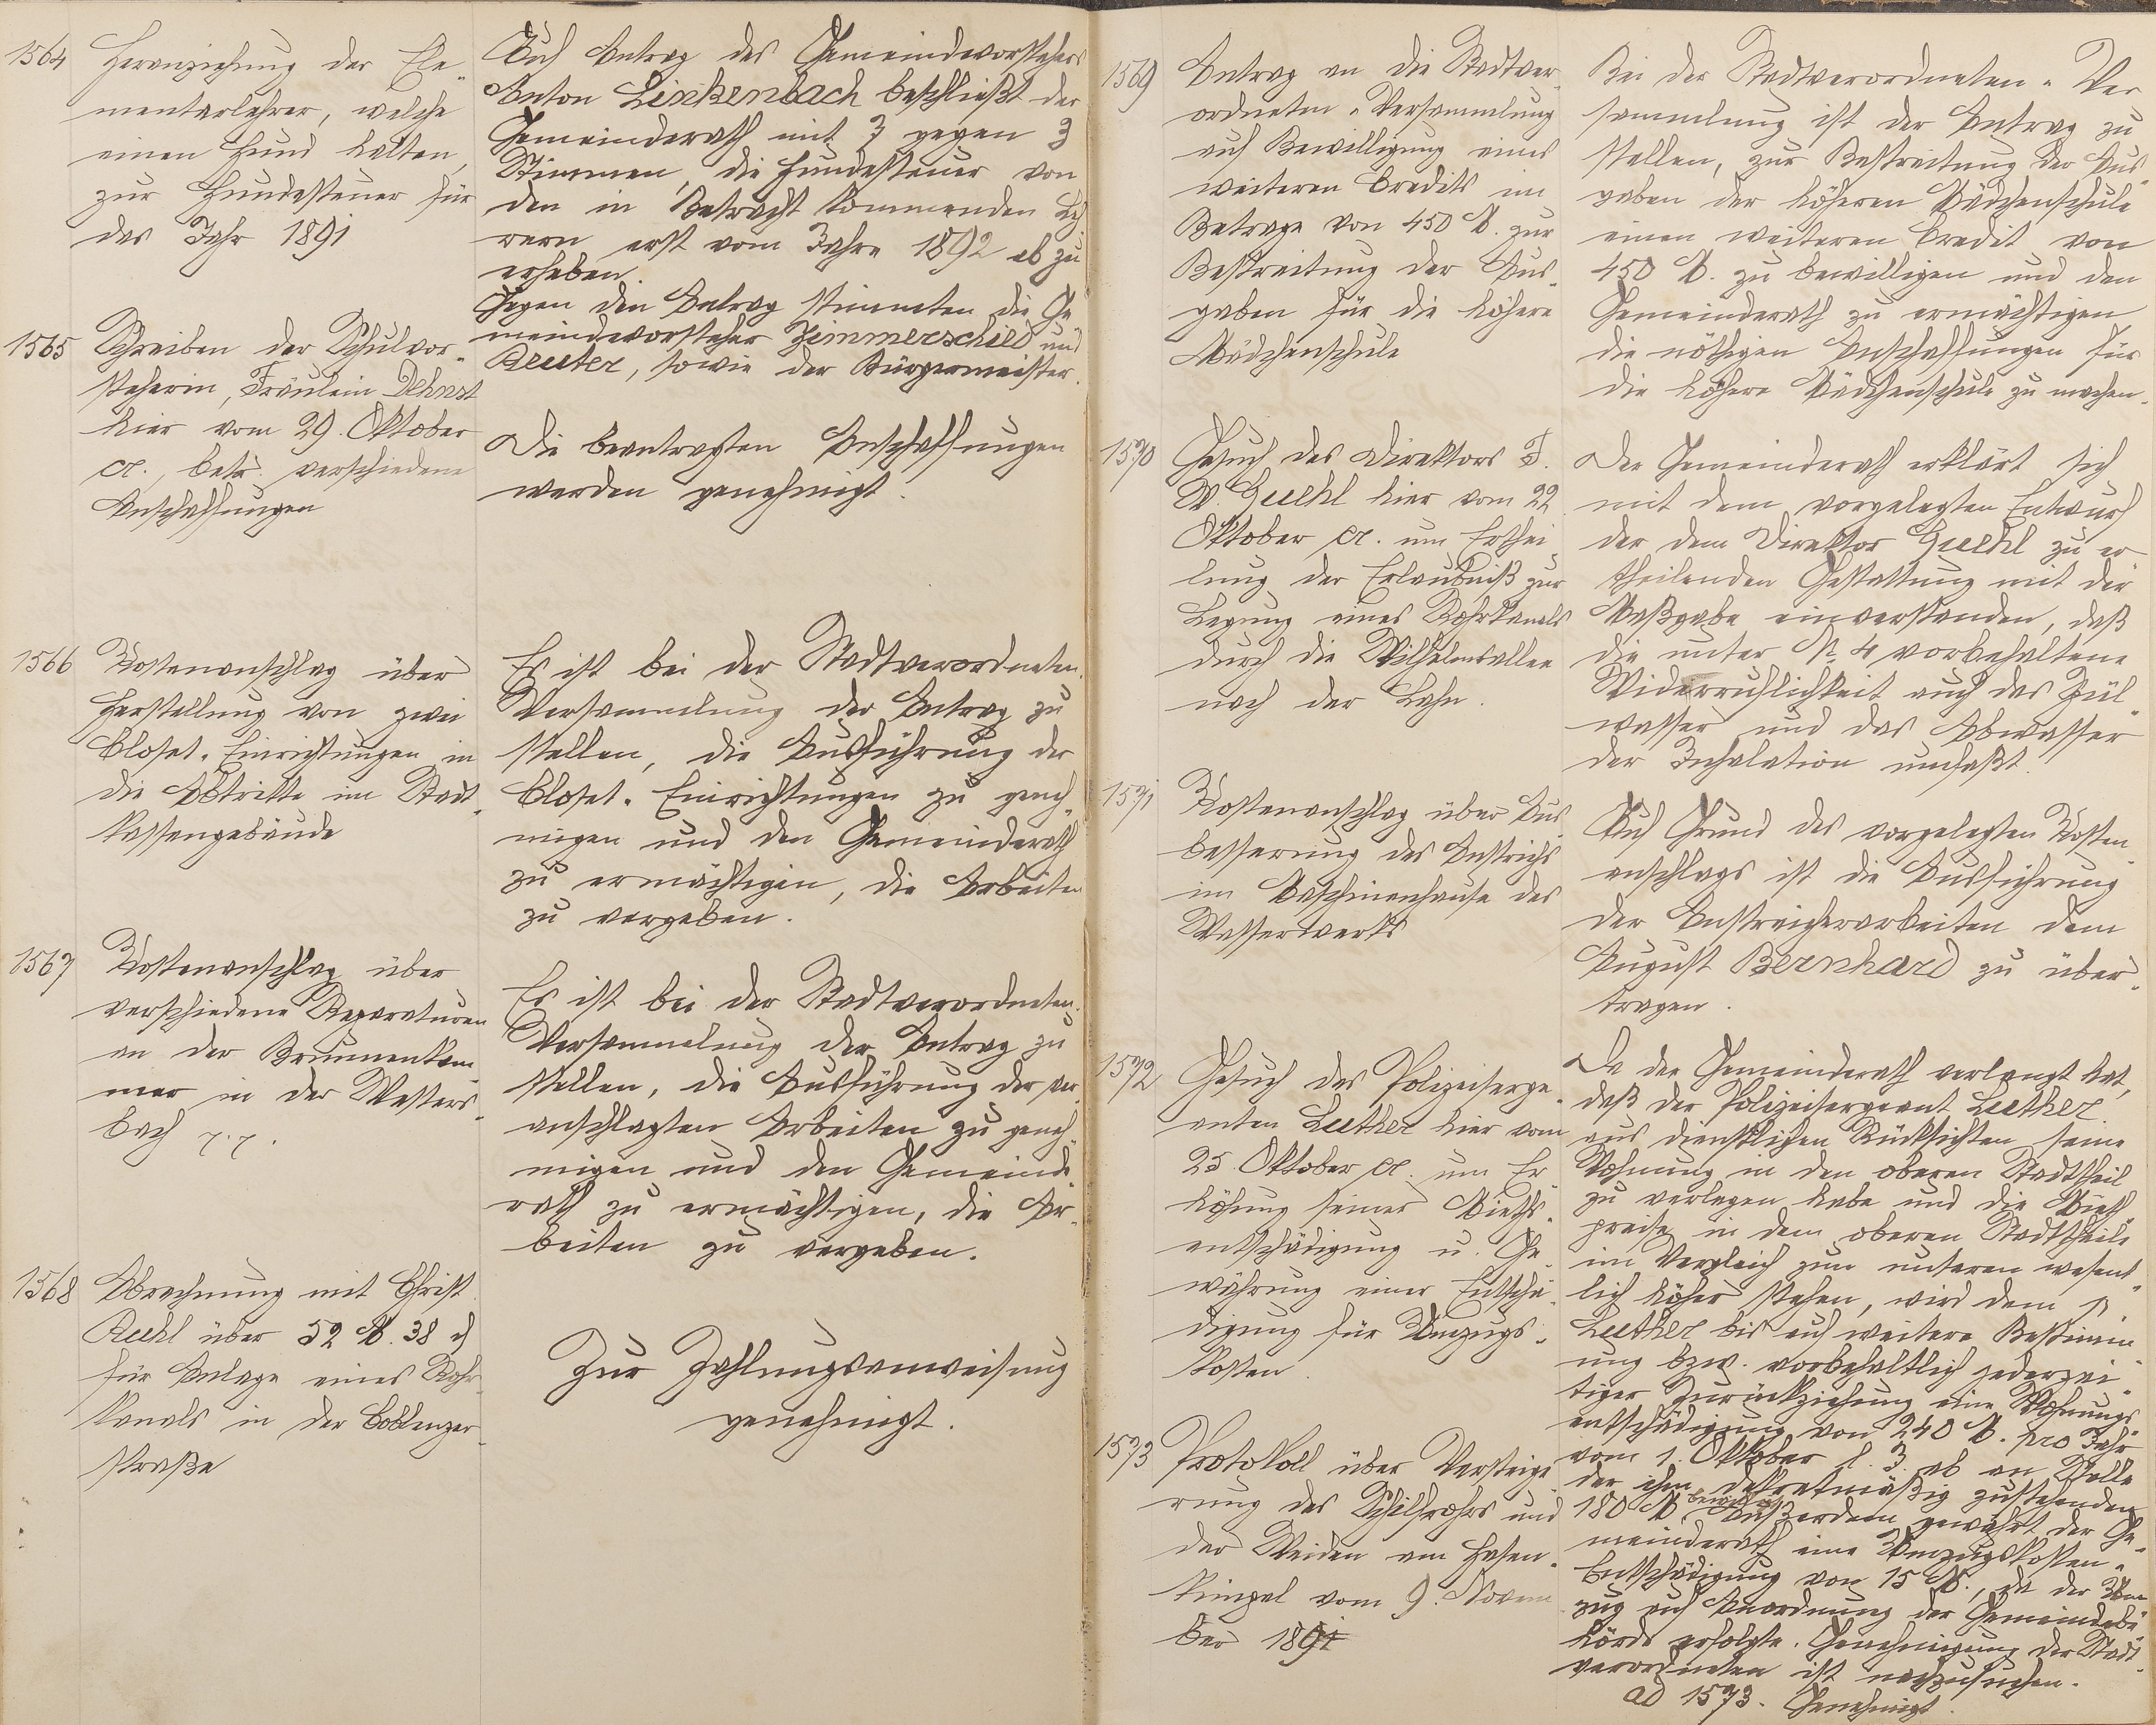 1564
Heranziehung der Ele-
mentarlehrer, welche
einen Hund halten,
zur Hundesteuer für
das Jahr 1891
Auf Antrag des Gemeindevorstehers
Anton Linkenbach beschließt der
Gemeinderath mit 7 gegen 3
Stimmen, die Hundesteuer von
den in Betracht kommenden Leh
rern erst vom Jahre 1892 ab zu
erheben.
Gegen den Antrag stimmten die Ge
meindevorsteher Zimmerschied und
Reuter, sowie der Bürgermeister.
1565
Schreiben der Schulvor-
steherin, Fräulein
hier vom 29. Oktober
cr., betr. verschiedene
Anschaffungen
Die beantragten Anschaffungen
werden genehmigt.
1566
Kostenanschlag über
Herstellung von zwei
Closet-Einrichtungen in
die Abtritte im Stadt-
kassengebäude
Es ist bei der Stadtverordneten-
Versammlung der Antrag zu
stellen, die Ausführung der
Closet-Einrichtungen zu geneh-
migen und den Gemeinderath
zu ermächtigen, die Arbeiten
zu vergeben.
1567
Kostenanschlag über
verschiedene Reparaturen
an der Brunnenkam
mer in der Watters-
bach p.p.
Es ist bei der Stadtverordneten-
Versammlung der Antrag zu
stellen, die Ausführung der ver-
anschlagten Arbeiten zu geneh
migen und den Gemeinde-
rath zu ermächtigen, die Ar-
beiten zu vergeben.
1568
Abrechnung mit Christ.
Ruhl über 52 M. 38 ₰
für Anlage eines Rohr-
kanals in der Coblenzer-
straße
Zur Zahlungsanweisung
genehmigt.
1569
Antrag an die Stadtver-
ordneten-Versammlung
auf Bewilligung eines
weiteren Credits im
Betrage von 450 M. zur
Bestreitung der Aus-
gaben für die höhere
Mädchenschule
Bei der Stadtverordneten-Ver
sammlung ist der Antrag zu
stellen, zur Bestreitung der Aus-
gaben der höheren Mädchenschule
einen weiteren Credit von
450 M. zu bewilligen und den
Gemeinderath zu ermächtigen,
die nöthigen Anschaffungen für
die höhere Mädchenschule zu machen.
1570
Gesuch des Direktors F.
W. Guckl hier vom 22.
Oktober cr. um Erthei
lung der Erlaubniß zur
Legung eines Rohrkanals
durch die Wilhelmsallee
nach der Lahn.
Der Gemeinderath erklärt sich
mit dem vorgelegten Entwurf
der dem Direktor Guckl zu er
theilenden Gestattung mit der
Maßgabe einverstanden, daß
die unter № 4 vorbehaltene
Widerruflichkeit auch das Spül-
wasser und das Abwasser
der Inhalation umfaßt.
1571
Kostenanschlag über Aus
besserung des Anstrichs
im Maschinenhause des
Wasserwerks
Auf Grund des vorgelegten Kosten-
anschlags ist die Ausführung
der Anstreicherarbeiten dem
August Bernhard zu über-
tragen.
1572
Gesuch des Polizeiserge-
anten Luther hier vom
25. Oktober cr. um Er-
höhung seiner Mieths-
entschädigung u. Ge-
währung einer Entschä-
digung für Umzugs-
kosten
Da der Gemeinderath verlangt hat,
daß der Polizeisergeant Luther
aus dienstlichen Rücksichten seine
Wohnung in den oberen Stadttheil
zu verlegen habe und die Mieth-
preise in dem oberen Stadttheile
im Vergleich zum unteren wesent-
lich höher stehen, wird dem p.
Luther bis auf weitere Bestimm-
ung bzw. vorbehaltlich jederzei-
tiger Zurückziehung eine Wohnungs-
entschädigung von 240 M. pro Jahr
vom 1. Oktober l. J. ab an Stelle
der ihm dekretmäßig zustehenden
180 M. bewilligt. Außerdem gewährt der Ge-
meinderath eine Umzugskosten-
Entschädigung von 15 M., da der Um
zug auf Anordnung der Gemeindebe-
hörde erfolgte. Genehmigung der Stadt-
verordneten ist nachzusuchen.
1573
Protokoll über Versteige
rung des Schilfrohrs und
der Weiden am Hasen-
kümpel vom 9. Novem
ber 1891
ad 1573. Genehmigt.